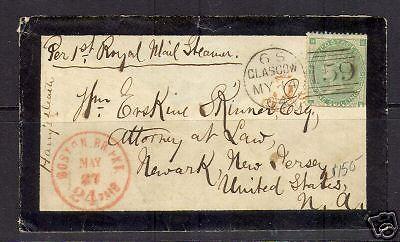 Per 1st Royal Mail Steamer.
6 S
GLASGOW
MY
159
Wm Erskine Skinner Esq.
Attorney at Law,
Newark, New Jersey,
United States,
N. A.
BOSTON BR. PKT.
MAY
27
24
$150